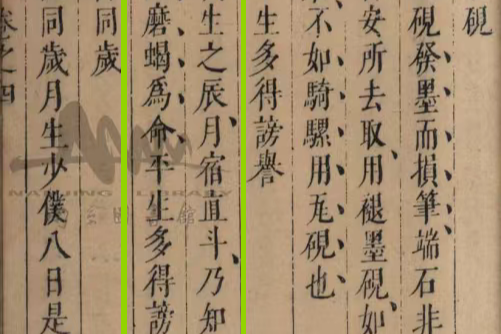 硯
硯發墨而損筆端石非
安所去取用褪墨硯如
不如騎騾用瓦硯也
生多得謗譽
生之辰月宿直斗乃知
磨蝎為命平生多得謗
同歲
同歲月生少僕八日是
卷之四
NANJING LIBRARY